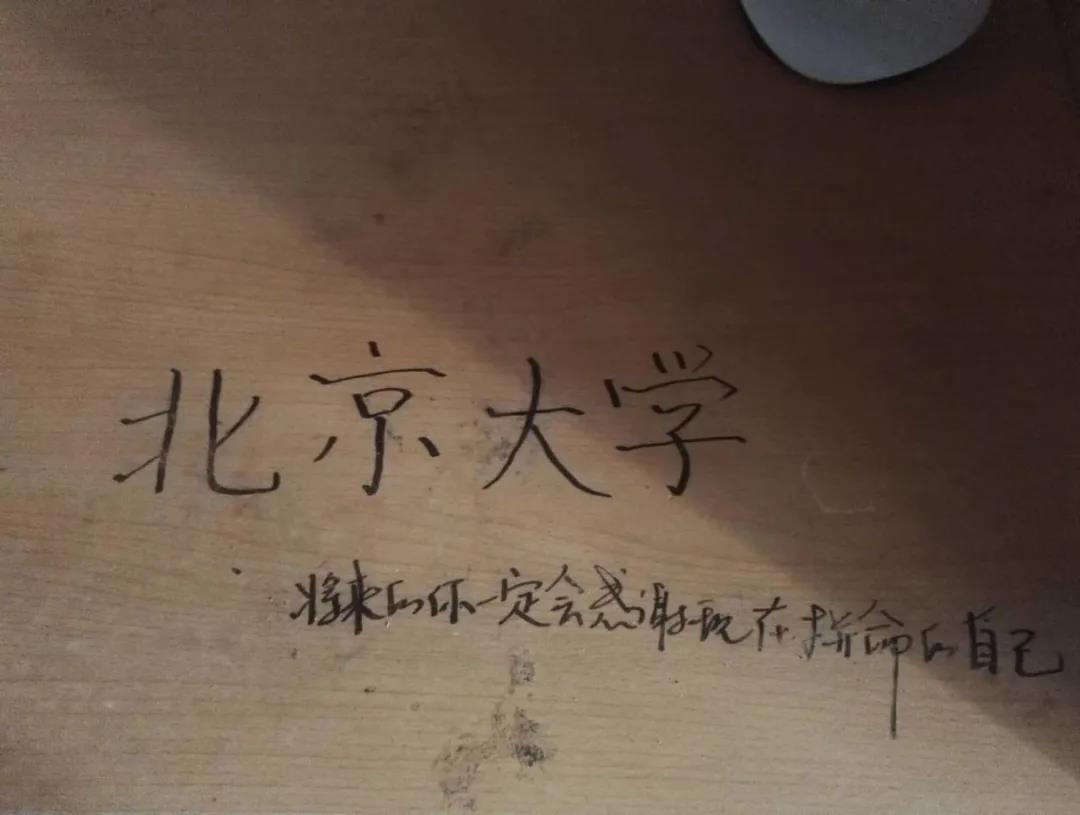 北京大学
将来的你一定会感谢现在拼命的自己